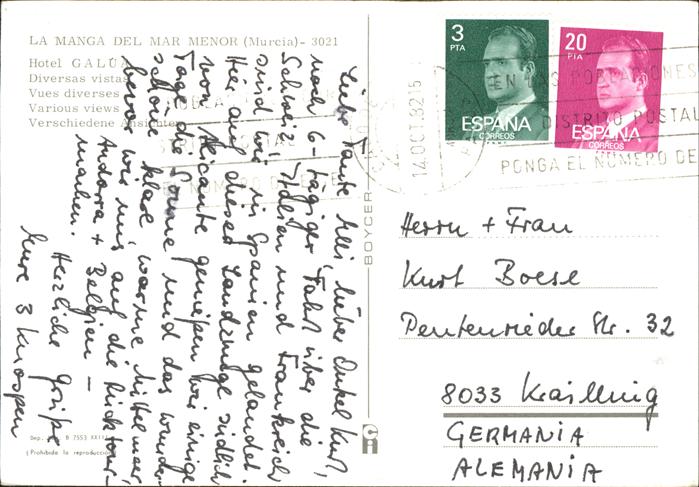 LA MANGA DEL MAR MENOR (Murcia) - 3021
Hotel GALÚA
Diversas vistas
Vues diverses
Various views
Verschiedene Ansichten
Liebe Tante Elli, lieber Onkel Kurt,
nach 6-tägiger Fahrt über die
Schweiz, Italien und Frankreich
sind wir in Spanien gelandet.
Hier auf dieser Landzunge südlich
von Alicante genießen wir einige
Tage die Sonne und das wunder-
schöne klare warme Mittelmeer,
bevor wir uns auf die Rücktour -
Andorra + Belgien -
machen.
Herzliche Grüße
Eure 3 Knospen
Dep. B 7553 XXII
(Prohibida la reproducción)
BOYCER
3
PTA
ESPAÑA
CORREOS
20
PTA
ESPAÑA
CORREOS
14 OCT 82 16
EN LAS POBLACIONES
DISTRITO POSTAL
PONGA EL NUMERO DE
Herrn + Frau
Kurt Boese
Pentenrieder Str. 32
8033 Krailling
GERMANIA
ALEMANIA